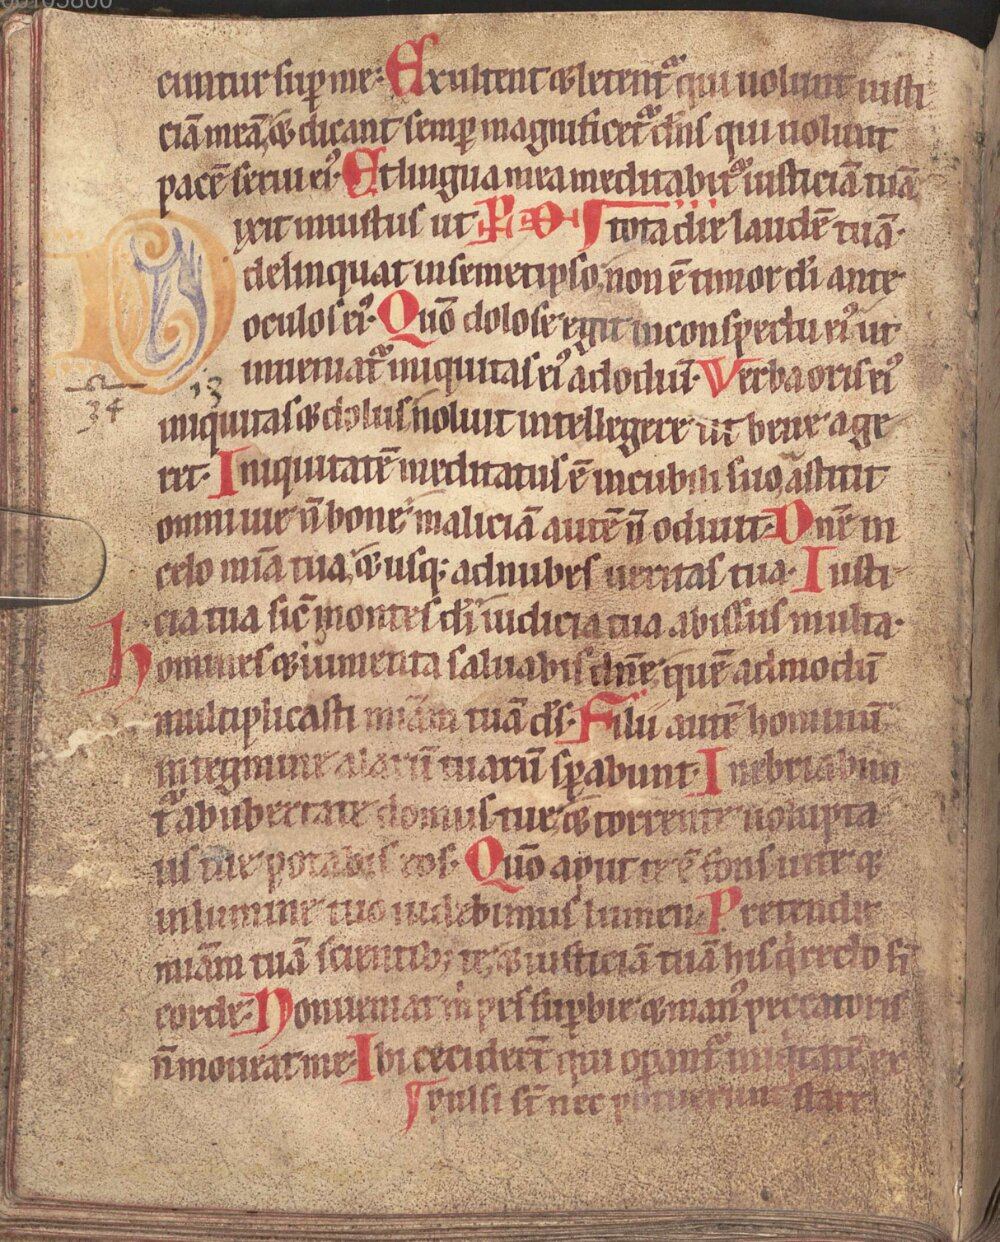 00103800
cuntur suꝑ me: Exultent ⁊ letent᷑ qui uolunt iusti
ciā meā, ⁊ dicant semꝑ magnificet᷑ dn̄s qui uolunt
pacē serui eiꝰ. Et lingua mea meditabit᷑ iusticiā tuā
ixit iniustus ut P̄S D tota die laudē tuā.
delinquat in semetipso, non ē timor dī ante
oculos eiꝰ. Quō dolose egit in conspectu eiꝰ ut
inueniat᷑ iniquitas eiꝰ ad odiū. Verba oris eiꝰ
13
34
iniquitas ⁊ dolus noluit intellegere ut bene age
ret. Iniquitatē meditatus ē in cubili suo, astitit
omni uie n̄ bone maliciā autē n̄ odiuit. Dn̄e in
celo mīa tua, ⁊ usq; ad nubes ueritas tua. Iusti
cia tua sic̄ montes dī iudicia tua abissus multa.
homines ⁊ iumenta saluabis dn̄e, quē admodū
multiplicasti mīam tuā ds̄. Filii autē hominū
in tegmine alarū tuarū sꝑabunt. Inebriabun
t᷑ ab ubertate domus tue, ⁊ torrente uolupta
tis tue potabis eos. Quō aput te ē fons uite ⁊
in lumine tuo uidebimus lumen. Pretende
mīam tuā scientib; te, ⁊ iusticiā tuā his q̇ recto st̄
corde. Non ueniat m̊ pes suꝑbie ⁊ manꝰ peccatoris
n̄ moueat me. Ibi cecidert̄ qui oꝑant᷑ iniq̇tatē ex
pulsi st̄ nec potuerunt stare